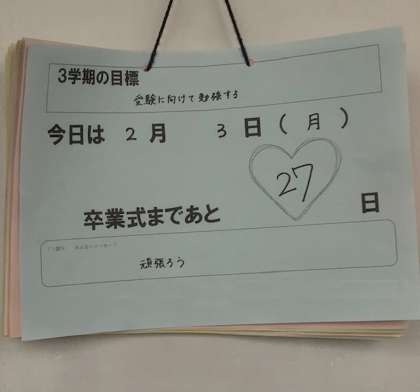 3学期の目標
受験に向けて勉強する
今日は 2 月 3 日 ( 月 )
27
卒業式まであと 日
頑張ろう